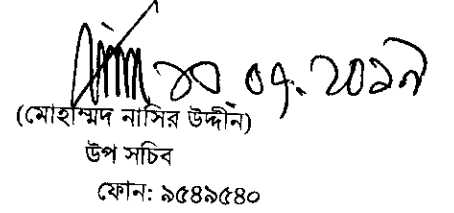 ১০.০৭.২০১৭
(মোহাম্মদ নাসির উদ্দীন)
উপ সচিব
ফোন: ৯৫৪৯৫৪০